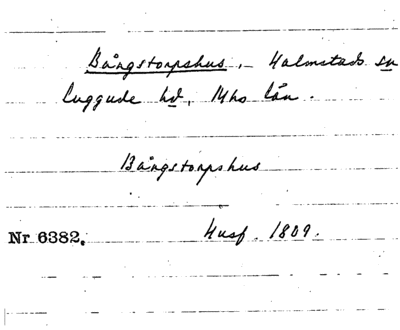 Bångstorpshus, - Halmstads sn
Luggude hd, Mhs län.
Bångstorpshus
Nr 6382.
Husf. 1809.